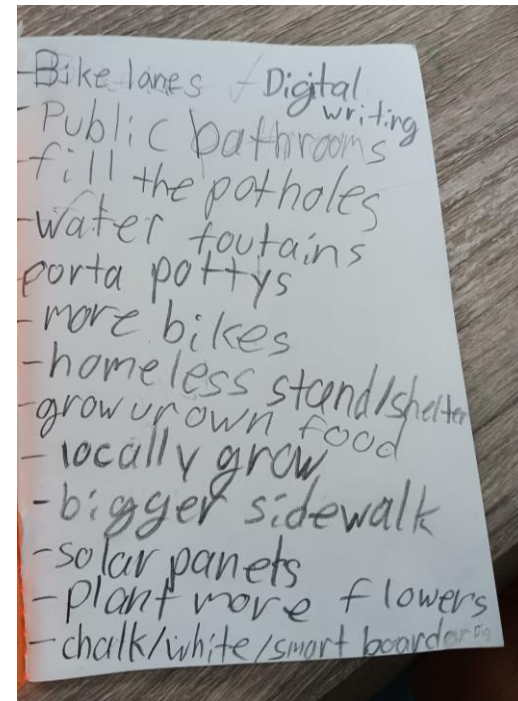 -Bike lanes - Digital writing
-Public bathrooms
-fill the potholes
-water foutains
porta pottys
-more bikes
-homeless stand/shelter
-grow ur own food
-locally grow
-bigger sidewalk
-solar panels
-plant more flowers
-chalk/white/smart board